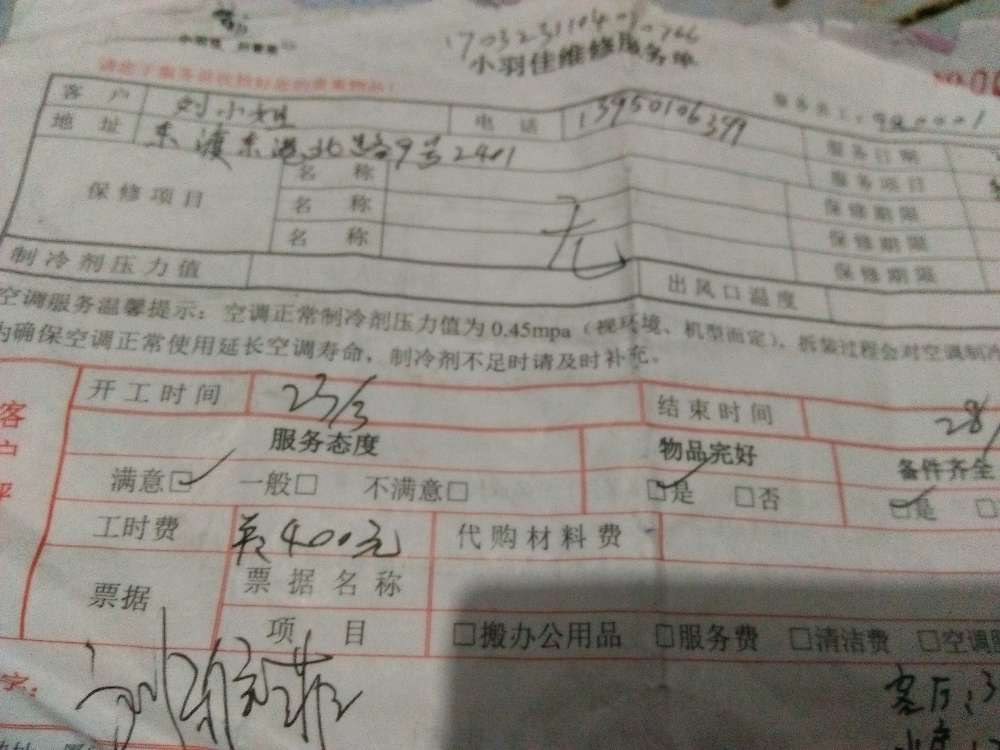 小羽佳维修服务单
客 户 刘小姐 电 话 13950106399 服务日期
地 址 东渡东港北路9号2401 服务项目
保修项目 名 称 保修期限
名 称 无 保修期限
名 称 保修期限
制冷剂压力值 出风口温度
空调服务温馨提示：空调正常制冷剂压力值为0.45mpa（视环境、机型而定），拆装过程会对空调制冷
为确保空调正常使用延长空调寿命，制冷剂不足时请及时补充。
开工时间 23/3 结束时间 28/
服务态度 物品完好 备件齐全
满意☑ 一般□ 不满意□ ☑是 □否 ☑是
工时费 共400元 代购材料费
票据 票据名称
项 目 □搬办公用品 □服务费 □清洁费 □空调
客厅:3